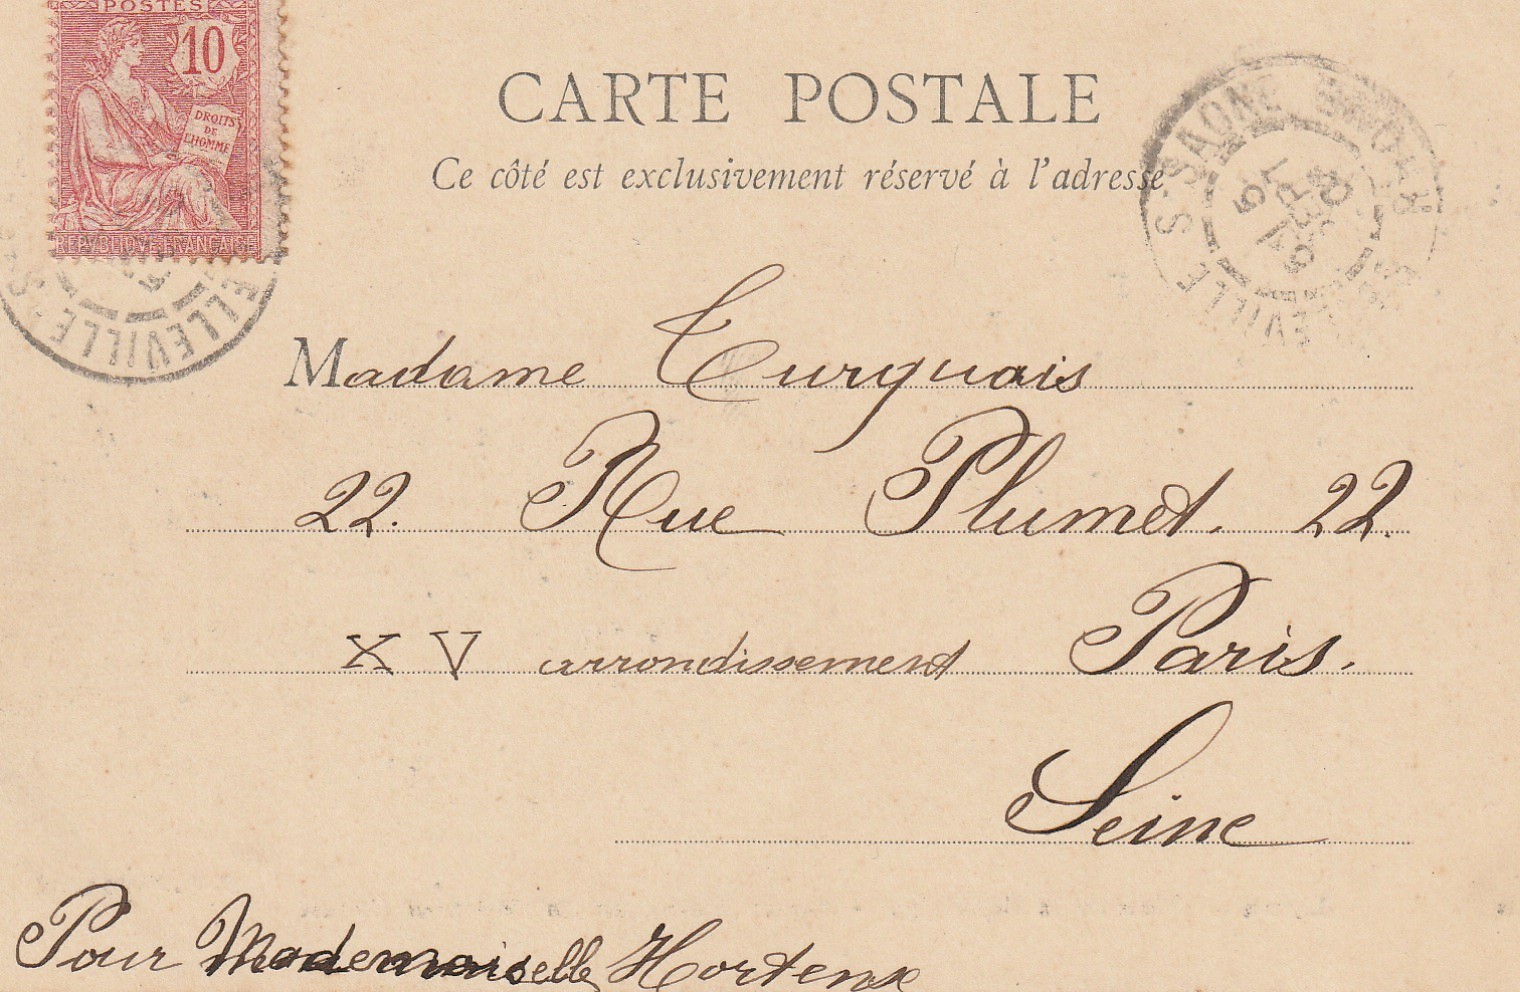 POSTES
10
DROITS
DE
L'HOMME
REPVBLIQVE FRANÇAISE
CARTE POSTALE
Ce côté est exclusivement réservé à l'adresse
BELLEVILLE-S-SAONE RHONE
Madame Turquais
22. Rue Plumet. 22.
XV arrondissement Paris.
Seine
Pour Mademoiselle Hortense